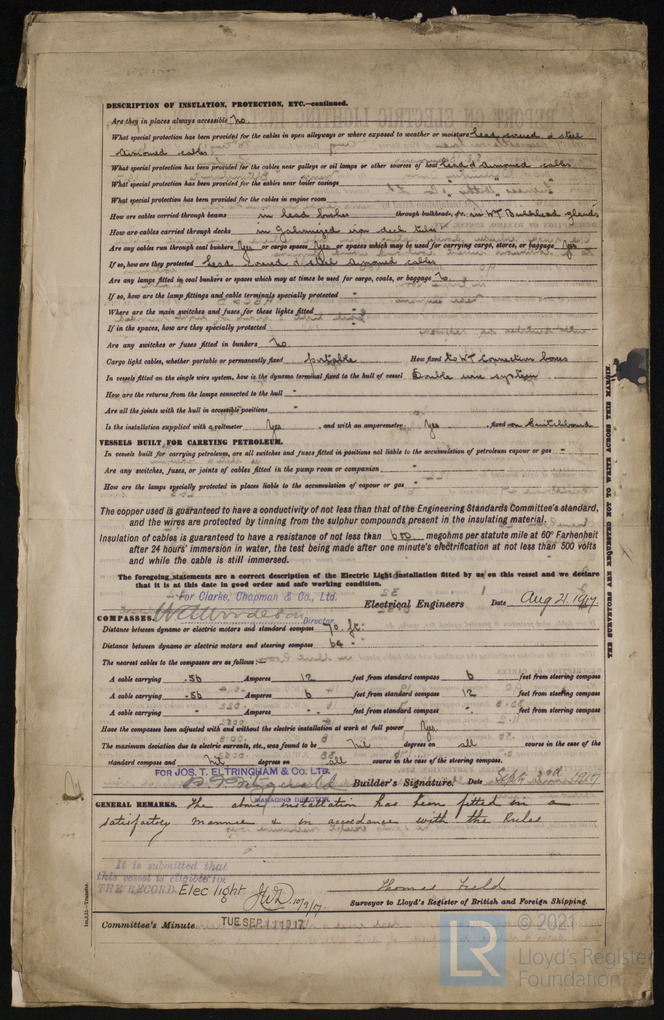 DESCRIPTION OF INSULATION, PROTECTION, ETC.—continued.
Are they in places always accessible No.
What special protection has been provided for the cables in open alleyways or where exposed to weather or moisture Lead covered & steel
Armoured cables
What special protection has been provided for the cables near galleys or oil lamps or other sources of heat Lead & Armoured cables
What special protection has been provided for the cables near boiler casings "
What special protection has been provided for the cables in engine room "
How are cables carried through beams in lead bushes through bulkheads, &c. in WT Bulkhead glands
How are cables carried through decks in Galvanized iron deck tubes
Are any cables run through coal bunkers Yes or cargo spaces Yes or spaces which may be used for carrying cargo, stores, or baggage Yes
If so, how are they protected Lead covered & steel armoured cables
Are any lamps fitted in coal bunkers or spaces which may at times be used for cargo, coals, or baggage No
If so, how are the lamp fittings and cable terminals specially protected "
Where are the main switches and fuses for these lights fitted "
If in the spaces, how are they specially protected "
Are any switches or fuses fitted in bunkers No.
Cargo light cables, whether portable or permanently fixed portable How fixed to WT Connection boxes
In vessels fitted on the single wire system, how is the dynamo terminal fixed to the hull of vessel Double wire system
How are the returns from the lamps connected to the hull "
Are all the joints with the hull in accessible positions "
Is the installation supplied with a voltmeter Yes , and with an amperemeter Yes , fixed on Switchboard
VESSELS BUILT FOR CARRYING PETROLEUM.
In vessels built for carrying petroleum, are all switches and fuses fitted in positions not liable to the accumulation of petroleum vapour or gas "
Are any switches, fuses, or joints of cables fitted in the pump room or companion "
How are the lamps specially protected in places liable to the accumulation of vapour or gas "
The copper used is guaranteed to have a conductivity of not less than that of the Engineering Standards Committee's standard,
and the wires are protected by tinning from the sulphur compounds present in the insulating material.
Insulation of cables is guaranteed to have a resistance of not less than 600 megohms per statute mile at 60° Farhenheit
after 24 hours' immersion in water, the test being made after one minute's electrification at not less than 500 volts
and while the cable is still immersed.
The foregoing statements are a correct description of the Electric Light installation fitted by us on this vessel and we declare
that it is at this date in good order and safe working condition.
For Clarke, Chapman & Co., Ltd.
Director. Electrical Engineers Date Aug 21. 1917
COMPASSES.
Distance between dynamo or electric motors and standard compass 70 ft.
Distance between dynamo or electric motors and steering compass 64 "
The nearest cables to the compasses are as follows:—
A cable carrying .56 Amperes 12 feet from standard compass 6 feet from steering compass
A cable carrying .56 Amperes 6 feet from standard compass 12 feet from steering compass
A cable carrying " Amperes " feet from standard compass " feet from steering compass
Have the compasses been adjusted with and without the electric installation at work at full power Yes.
The maximum deviation due to electric currents, etc., was found to be Nil degrees on all course in the case of the
standard compass and Nil degrees on all course in the case of the steering compass.
FOR JOS. T. ELTRINGHAM & CO. LTD.
Builder's Signature. Date Sept 3rd 1917
MANAGING DIRECTOR
GENERAL REMARKS. The above installation has been fitted in a
satisfactory manner & in accordance with the Rules
It is submitted that
this vessel is eligible for
THE RECORD. Elec light 10/9/17
Thomas Field
Surveyor to Lloyd's Register of British and Foreign Shipping.
Committee's Minute TUE SEP 11 1917
THE SURVEYORS ARE REQUESTED NOT TO WRITE ACROSS THIS MARGIN
© 2021
LR Lloyd's Register
Foundation